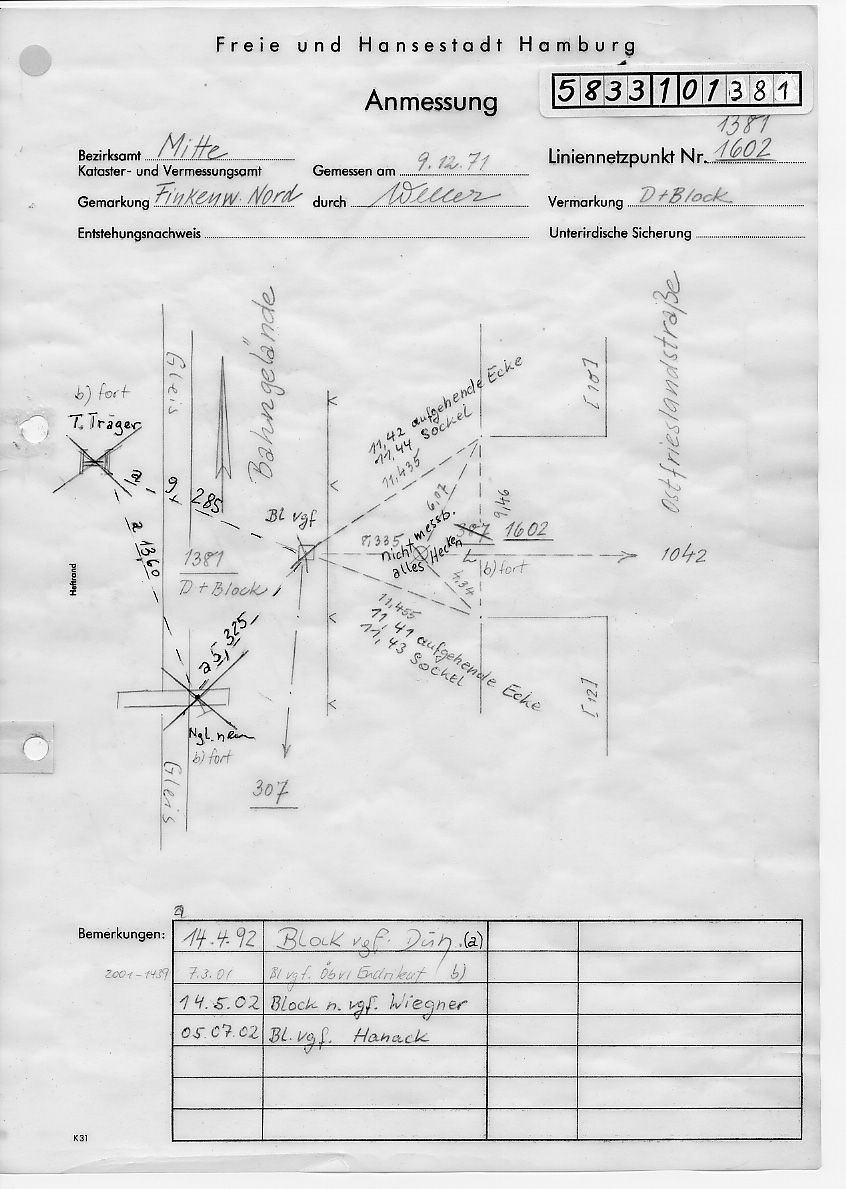 Freie und Hansestadt Hamburg
Anmessung
5833101381
1381
Bezirksamt Mitte
Kataster- und Vermessungsamt
Gemessen am 9.12.71
Liniennetzpunkt Nr. 1602
Gemarkung Finkenw. Nord
durch Weller
Vermarkung D+Block
Entstehungsnachweis
Unterirdische Sicherung
Gleis
Bahngelände
Ostfrieslandstraße
b) fort
T. Träger
11,42 aufgehende Ecke
11,44 Sockel
11,435
[10]
a 9,285
Bl vgf
6,07
9,46
8,335
nicht messb.
alles Hecken
307
1602
1042
a 1360
1381
D+Block
b) fort
4,34
Heftrand
a 5,325
11,455
11,41 aufgehende Ecke
11,43 Sockel
[12]
Ngl. neu
b) fort
Gleis
307
a
Bemerkungen:
14.4.92 Block vgf. (a)
2001-1439 7.3.01 Bl vgf. Öbvi Endrikat b)
14.5.02 Block n. vgf. Wiegner
05.07.02 Bl. vgf. Hanack
K31